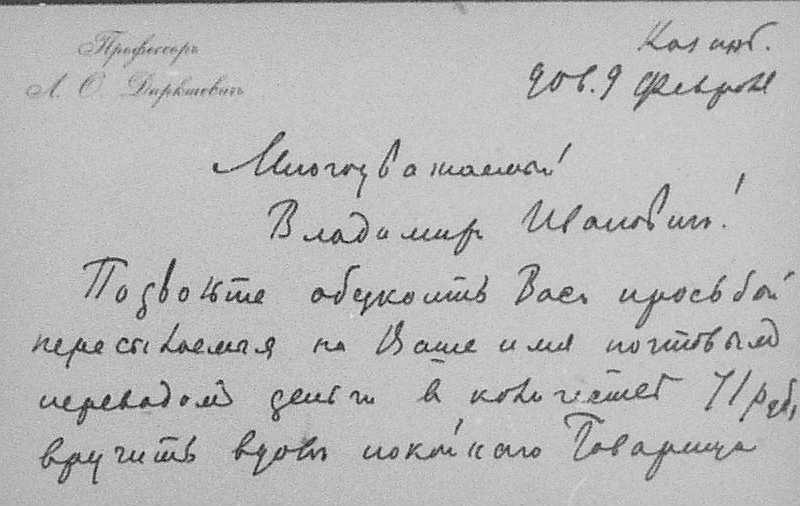 Профессоръ
Л. О. Даркшевичъ
Казань.
908. 9 Февраля
Многоуважаемый
Владимиръ Ивановичъ!
Позвольте обезпокоить Васъ просьбой
пересылаемыя на Ваше имя почтовымъ
переводомъ деньги въ количествѣ 71 руб.
вручить вдовѣ покойнаго Товарища